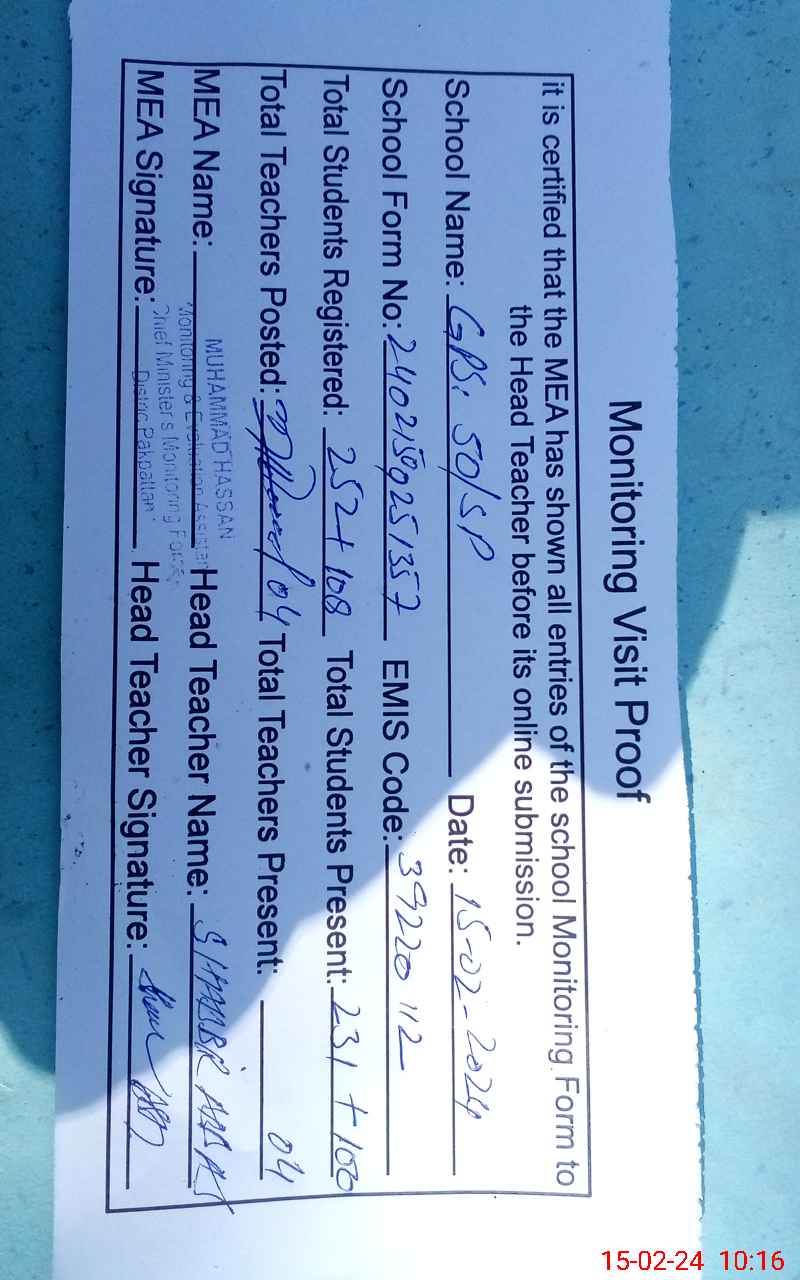 Monitoring Visit Proof
it is certified that the MEA has shown all entries of the school Monitoring Form to
the Head Teacher before its online submission.
School Name: GPS. 50/SP Date: 15-02-2024
School Form No: 2402150251357 EMIS Code: 39220112
Total Students Registered: 252+108 Total Students Present: 231+100
Total Teachers Posted: 04 Total Teachers Present: 04
MEA Name: Head Teacher Name: SHABBIR ABBAS
MUHAMMAD HASSAN
Monitoring & Evaluation Assistant
Chief Minister's Monitoring Force
District Pakpattan
MEA Signature: Head Teacher Signature:
15-02-24 10:16